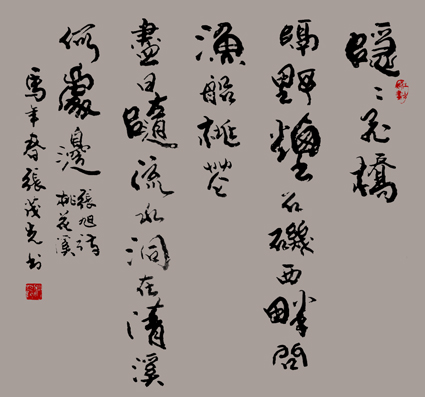 隱〻飛橋
隔野煙石磯西畔問
漁船桃花
盡日隨流水洞在清溪
何處邊
張旭詩
桃花溪
馬年春張茂光书